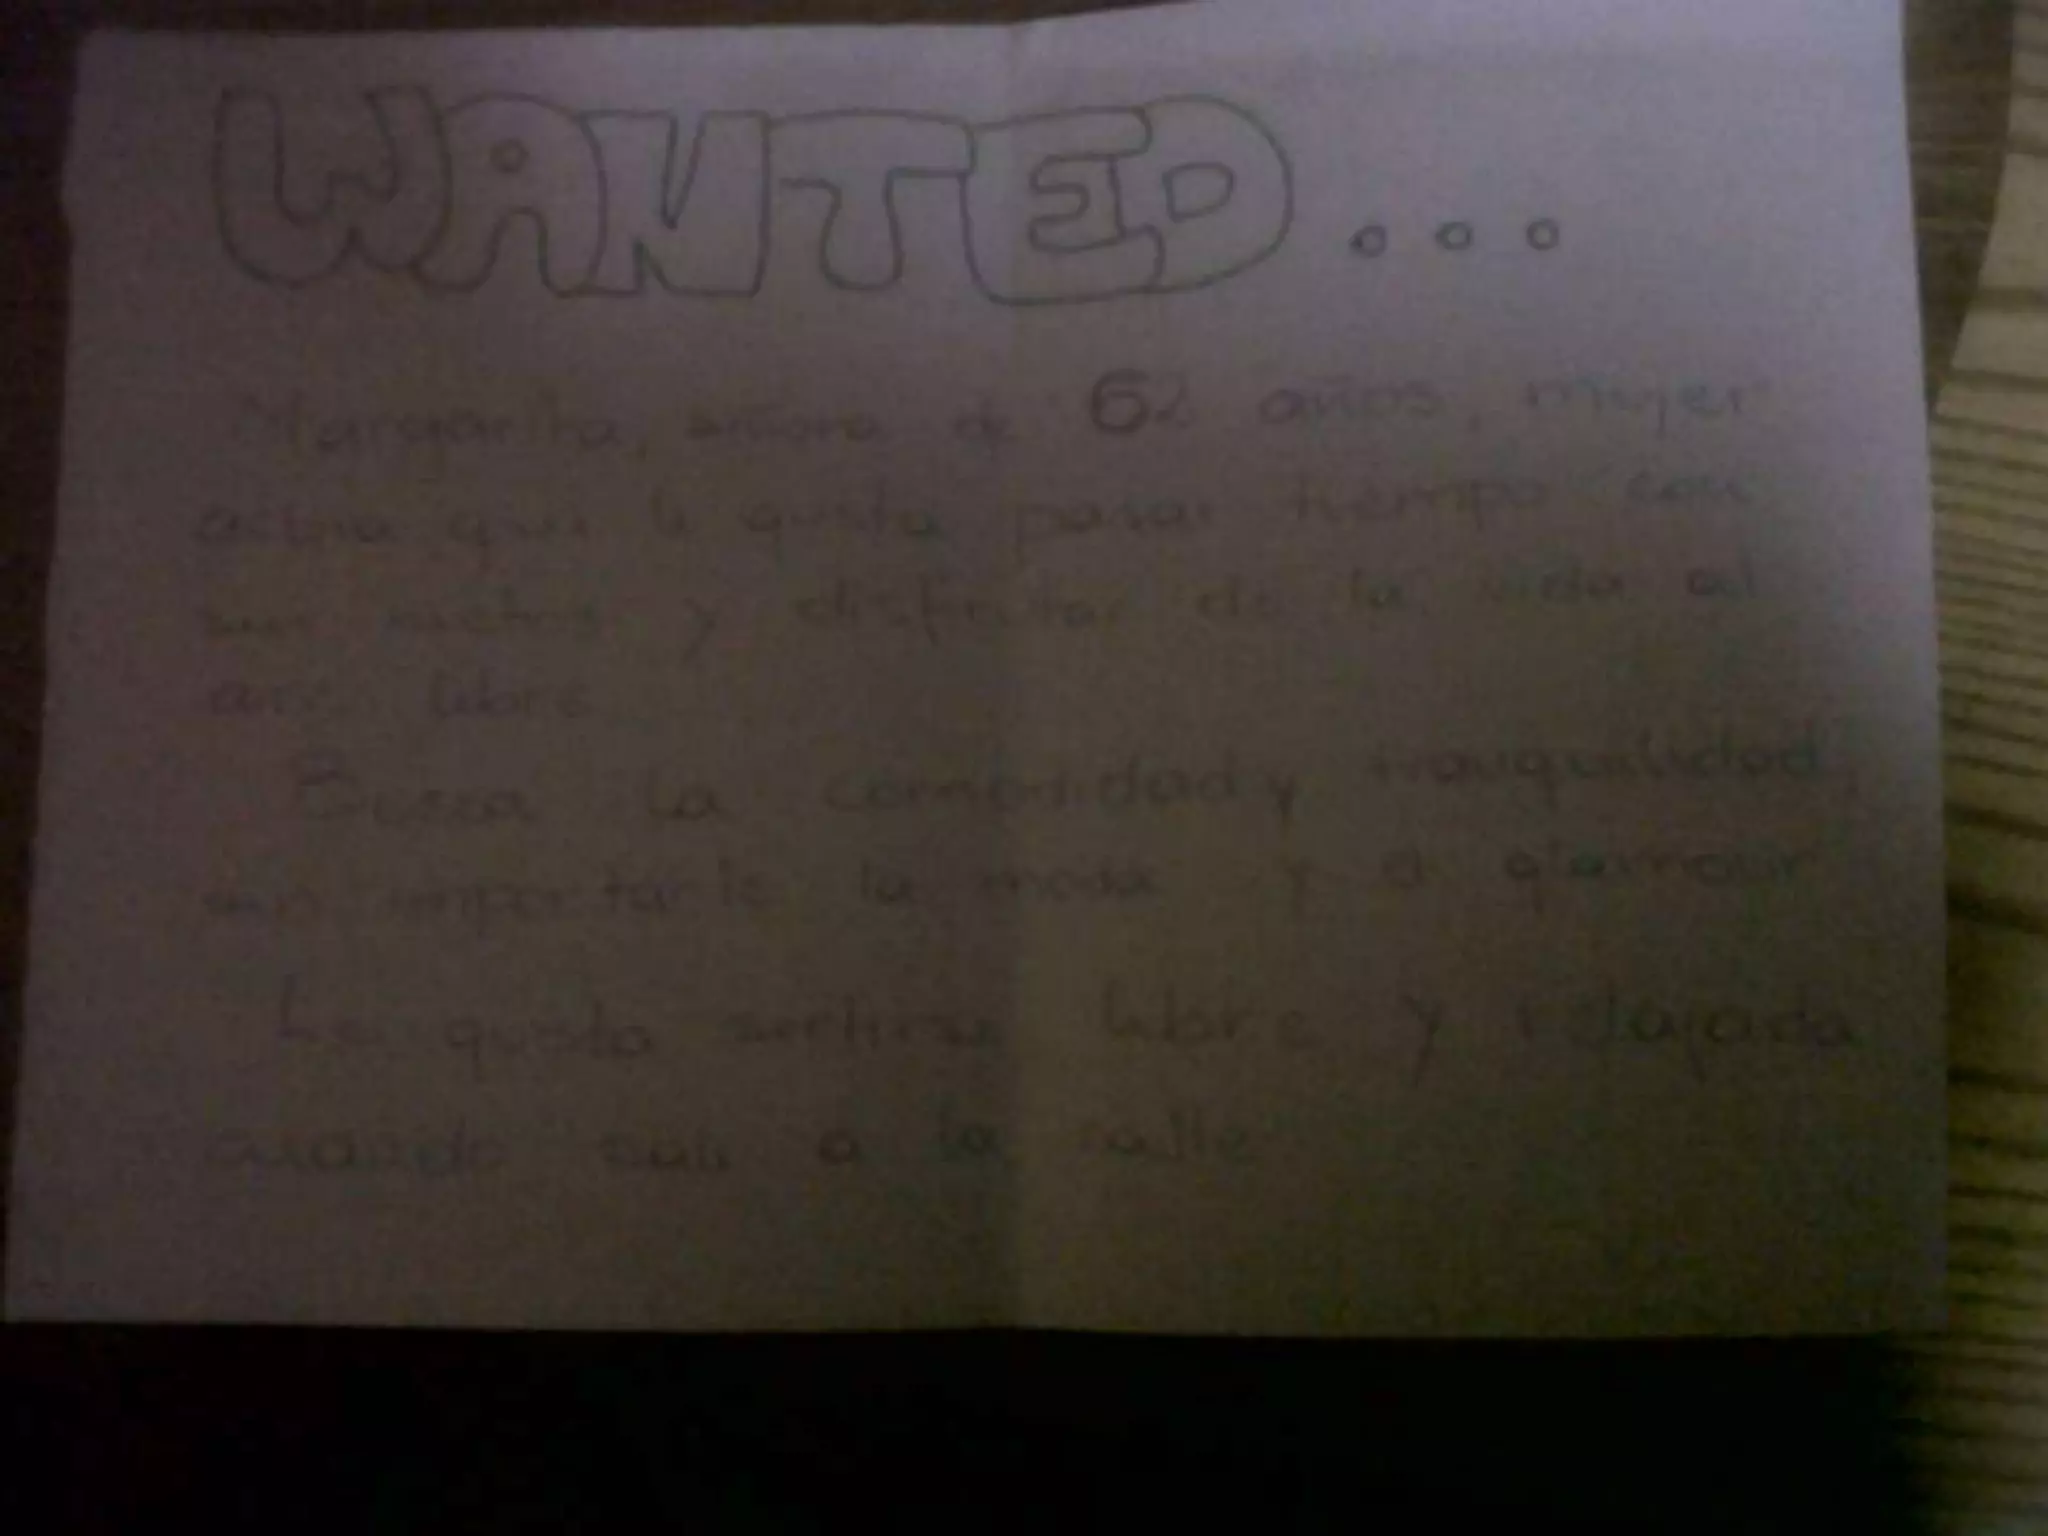 WANTED...
Margarita, señora de 62 años, mujer
activa que le gusta pasar tiempo con
sus nietos y disfrutar de la vida al
aire libre
Busca la comodidad y tranquilidad,
sin importarle la moda y el glamour
Le gusta sentirse libre y relajada
cuando sale a la calle